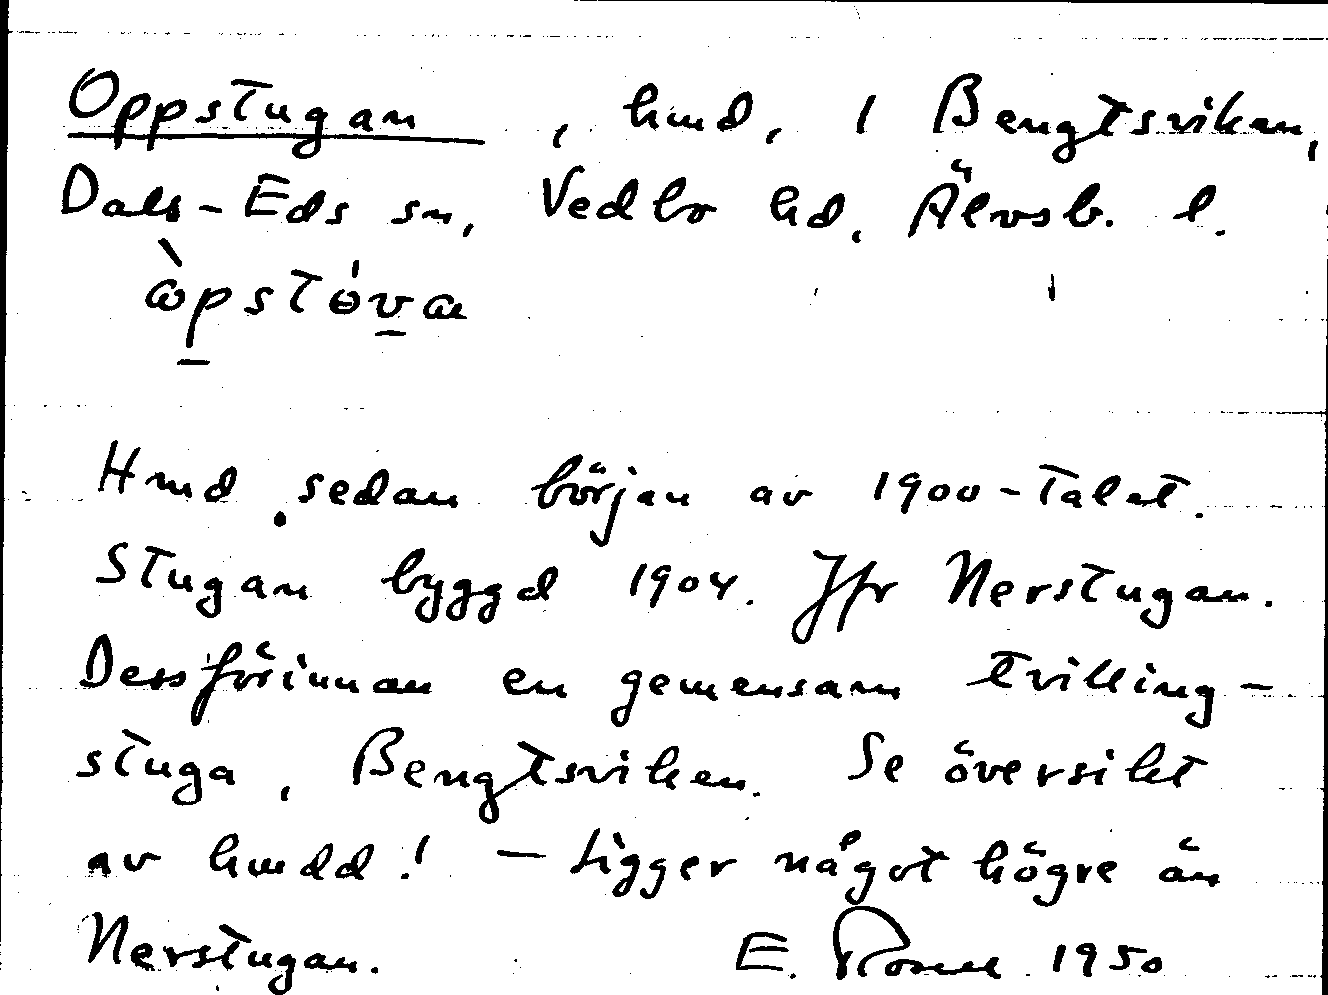 Oppstugan, hmd, i Bengtsviken,
Dals-Eds sn, Vedbo hd, Älvsb. l.
Hmd sedan början av 1900-talet.
Stugan byggd 1904. Jfr Nerstugan.
Dessförinnan en gemensam tvilling-
stuga, Bengtsviken. Se översikt
av hmdd! – Ligger något högre än
Nerstugan. E. 1950